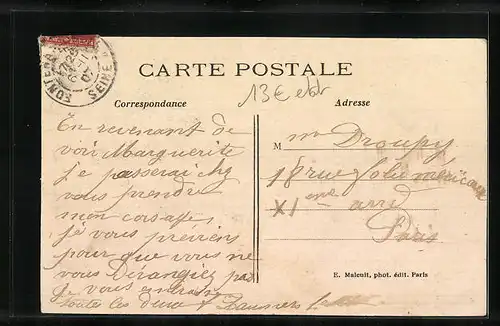 FONTENA
SEINE
CARTE POSTALE
13€ ebt
Correspondance
Adresse
En revenant de
voir Marguerite
je passerai chez
vous prendre
mon corsage,
je vous préviens
pour que vous ne
vous dérangiez pas
je vous embrasse
toutes les deux
M me Droupy
18 rue Folie méricourt
XI eme arrd
Paris
E. Malcuit, phot. édit. Paris